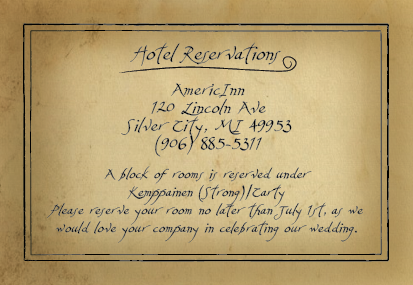 Hotel Reservations
AmericInn
120 Lincoln Ave
Silver City, MI 49953
(906) 885-5311
A block of rooms is reserved under
Kemppainen (Strong)/Carty
Please reserve your room no later than July 1st, as we
would love your company in celebrating our wedding.